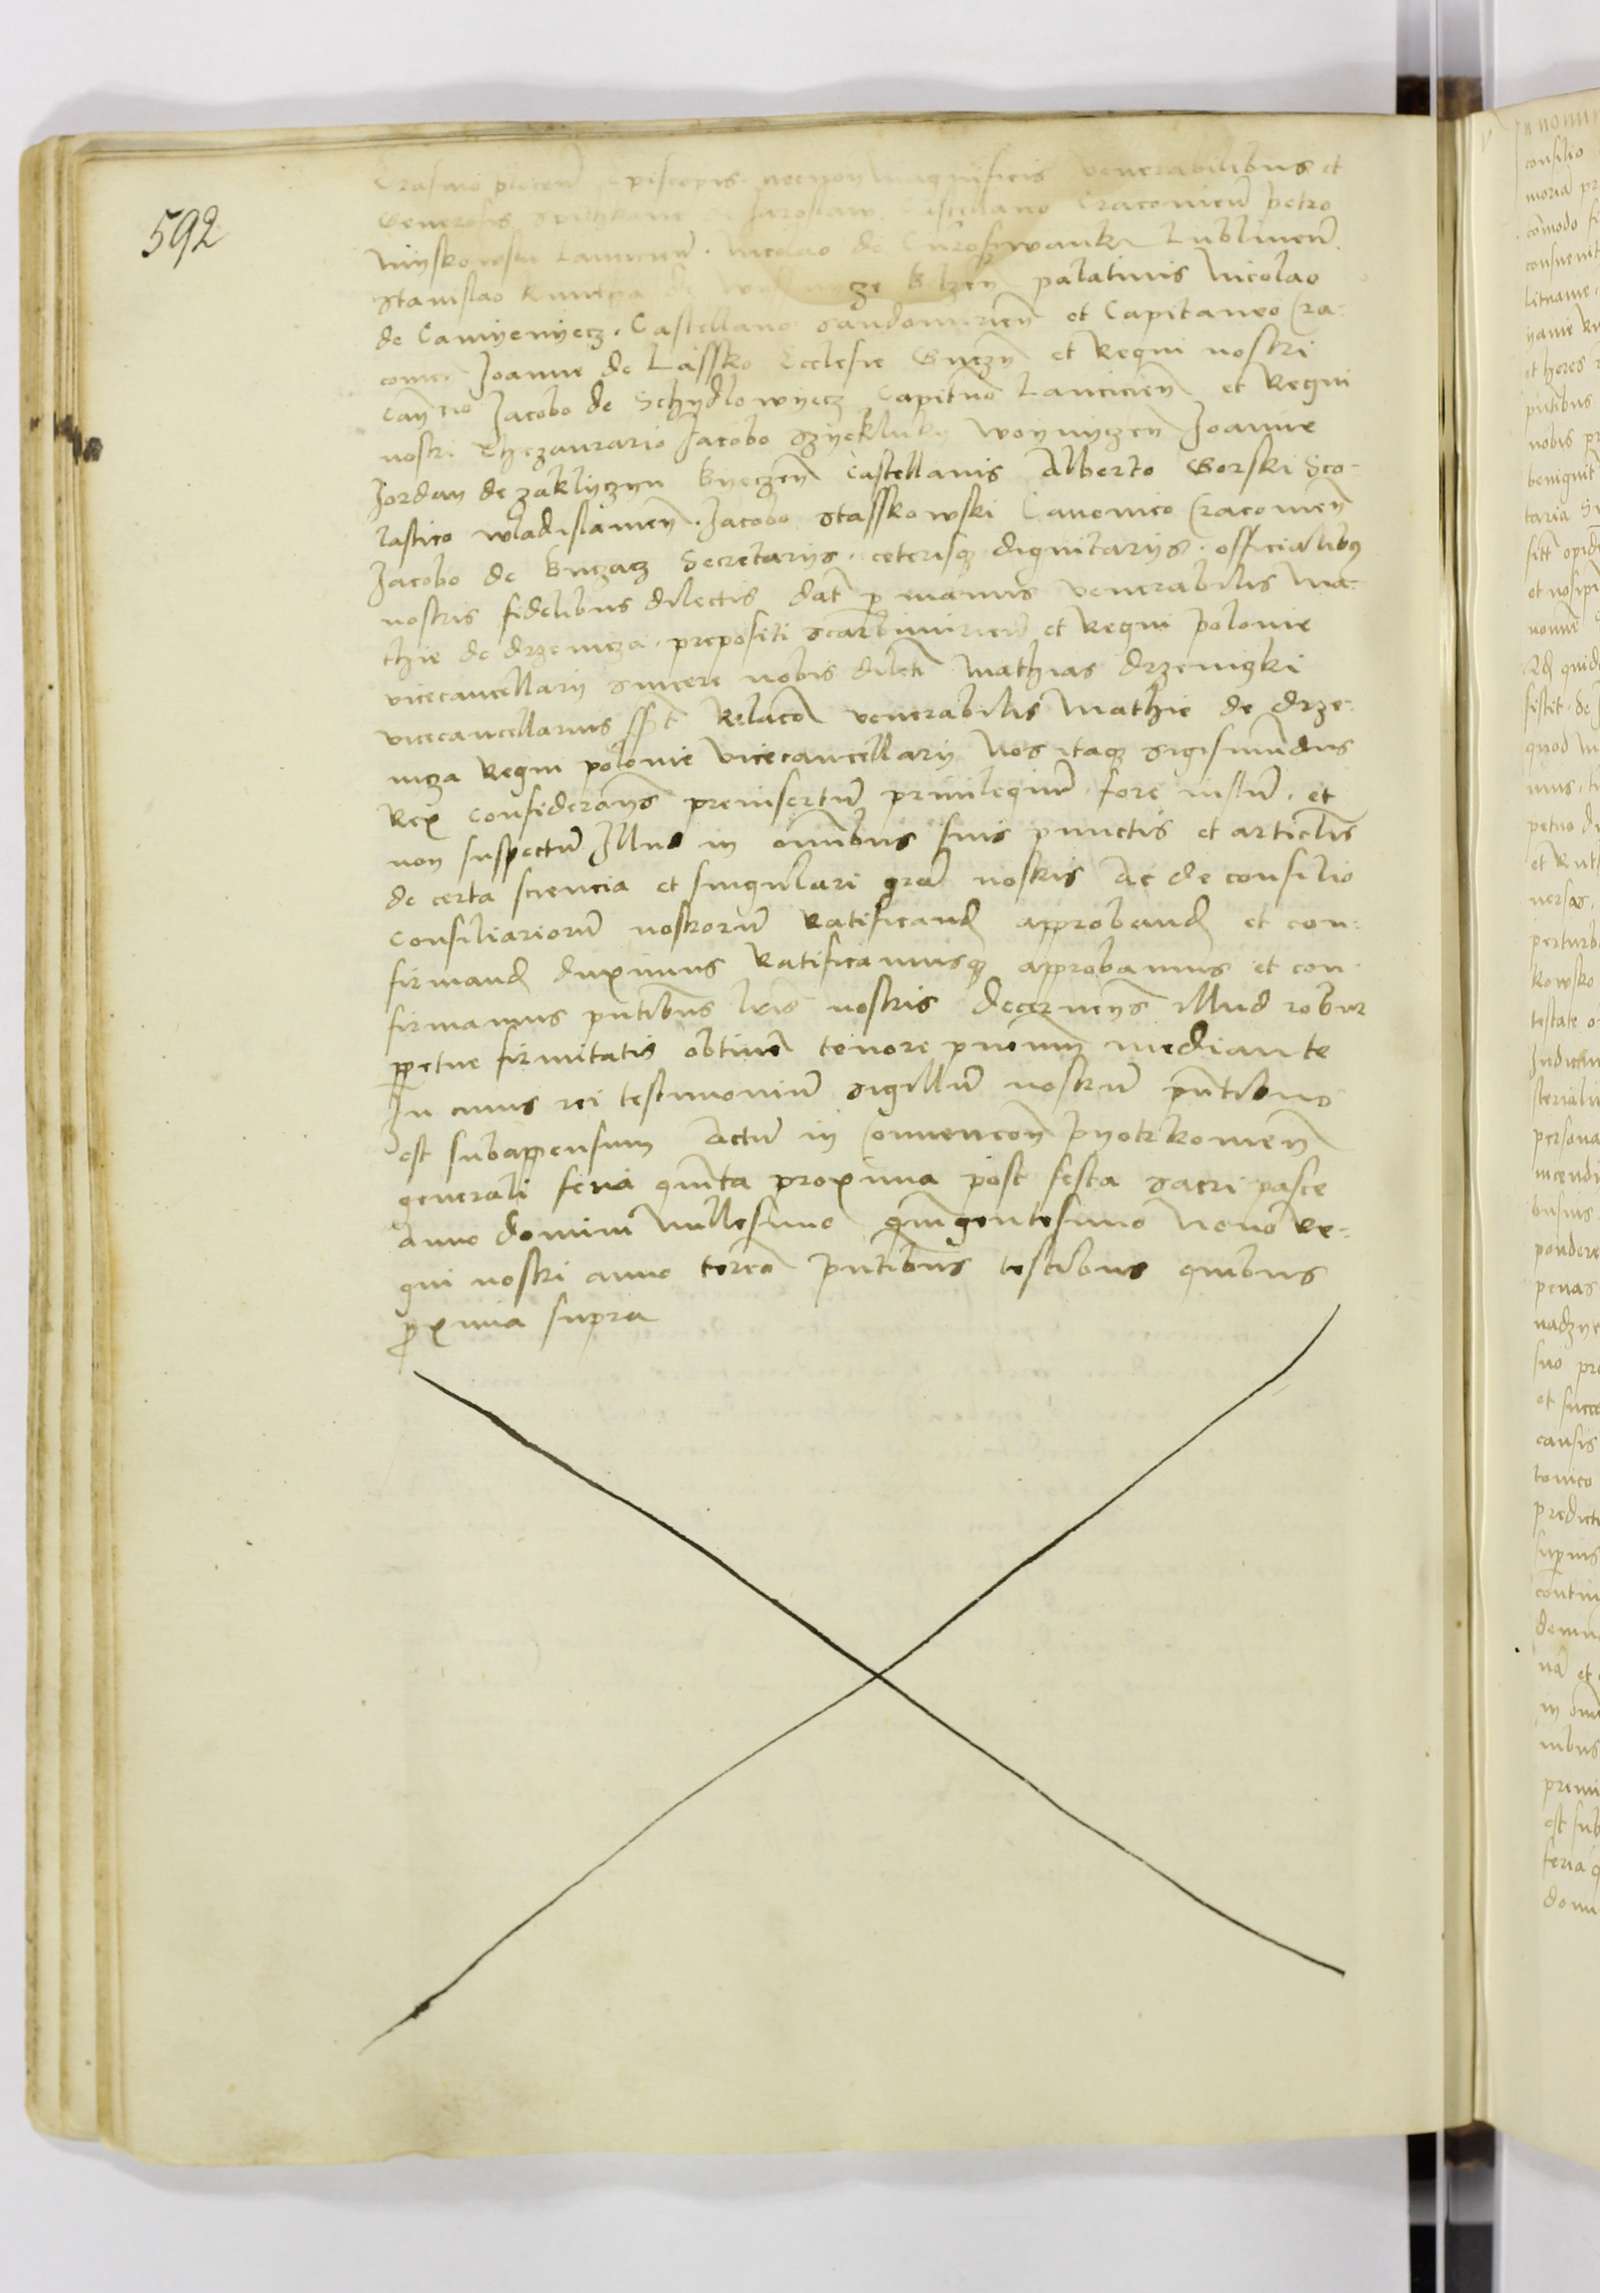 592
Erasmo plocen Episcopis necnon magnificis venerabilibus et
Generosis de Jaroslaw Castellano Cracouien Petro
Myskowski Lancicien. Nicolao de Curoszwanki Lublinen
Stanislao Kmitha de Belzen palatinis Nicolao
de Camyenyecz. Castellano Sandomirien et Capitaneo Cra-
couien Joanne de Lassko Ecclesie Gnezn et Regni nostri
Cancrio Jacobo de Schydlowyecz Capitneo Lancicien et Regni
nostri Thezaurario Jacobo Szyekluky woynyczen Joanne
Jordan de zaklyczyn Byeczen Castellanis Alberto Gorski Sco-
lastico wladislauien. Jacobo Stasskowski Canonico Cracouien
Jacobo de Buczacz Secretarijs. ceterisqz dignitarijs. officialibus
nostris fidelibus dilectis dat p manus venerabilis Ma-
thie de drzewicza. prepositi Scarbimirien et Regni polonie
vicecancellarij sincere nobis dilcti Mathias drzewiczki
vicecancellarius sspt Relacio venerabilis Mathie de drze-
wicza Regni polonie vicecancellarij Nos itaqz Sigismundus
Rex considerans preinsertu priuilegiu fore iustu. et
non suspectu Illud in omnibus suis punctis et articlis
de certa sciencia et singulari gra nostris Ac de consilio
consiliarioru nostroru Ratificand approband et con-
firmand duximus Ratificamusqz approbamus et con-
firmamus pntibus lris nostris decernens illud robur
ppetue firmitatis obtine tenore pntium mediante
In cuius rei testimoniu sigillu nostru pntibus
est subappensum Actu in Conuencon pyotrkouien
generali feria quinta proxima post festa sacri pasce
Anno domini Millesimo quingentesimo Nono Re-
gni nostri anno tercio pntibus testibus quibus
proxima supra